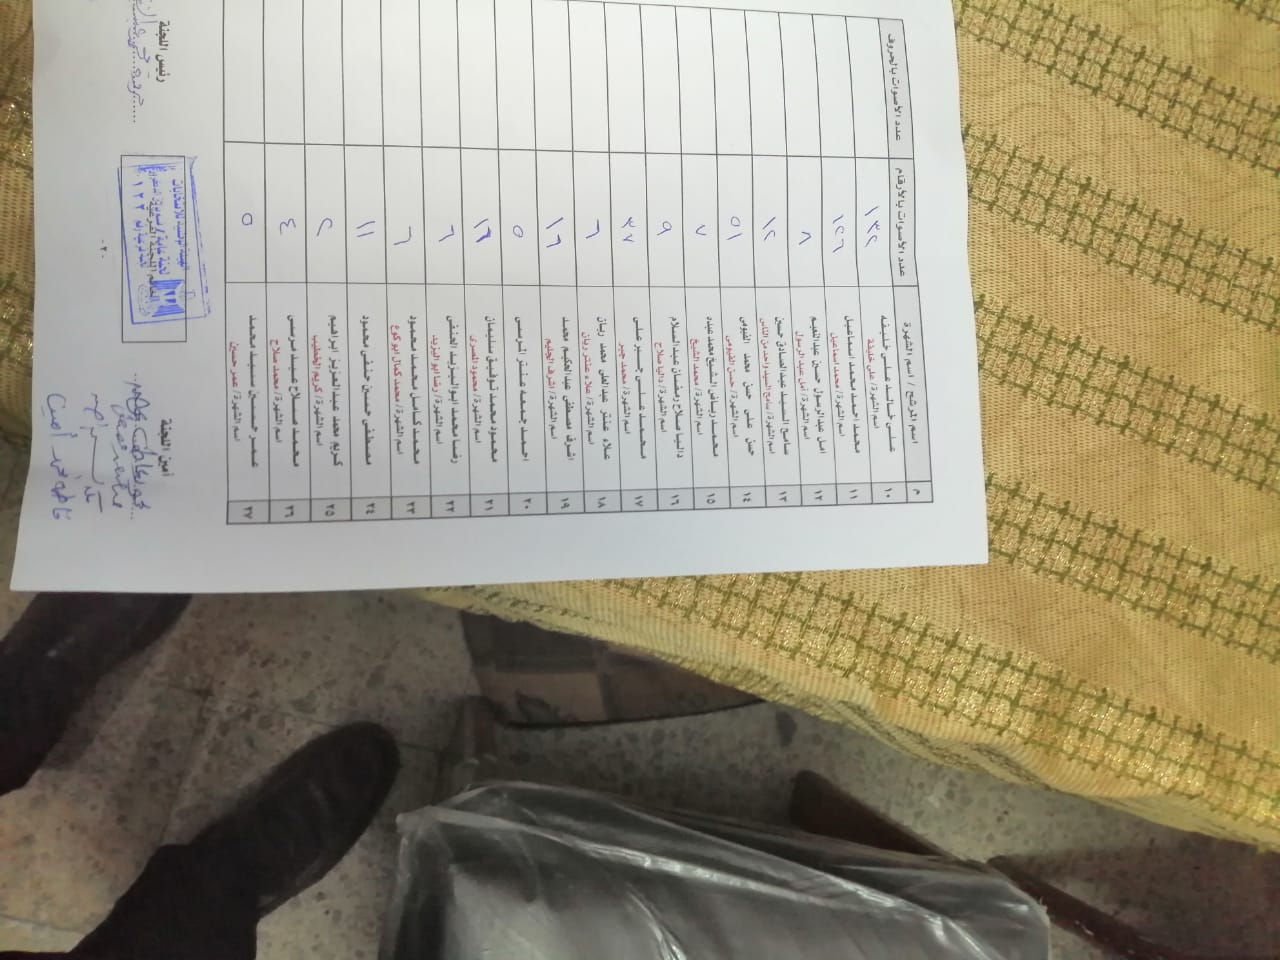 م
اسم المرشح / اسم الشهرة
عدد الأصوات بالأرقام
عدد الأصوات بالحروف
١٠
علي خالد علي خليفه
اسم الشهرة / علي خليفة
١٣٢
١١
محمد احمد محمد اسماعيل
اسم الشهرة / محمد اسماعيل
١٤٦
١٢
امل عبدالرسول حسين عبدالنعيم
اسم الشهرة / امل عبد الرسول
٨
١٣
سامح السيد عبدالصادق حسين
اسم الشهرة / سامح السيد واحد من الناس
١٢
١٤
حسن علي حسن محمد الفيومي
اسم الشهرة / حسن الفيومي
٥١
١٥
محمد رياض الشيخ محمد عبده
اسم الشهرة / محمد الشيخ
٧
١٦
داليا صلاح رمضان عبدالسلام
اسم الشهرة / داليا صلاح
٩
١٧
محمد علي جبر علي
اسم الشهرة / محمد جبر
٣٧
١٨
علاء عنتر عبدالعال محمد ريان
اسم الشهرة / علاء عنتر ريان
٦
١٩
اشرف مصطفى عبدالحكيم محمد
اسم الشهرة / اشرف الحكيم
١٦
٢٠
احمد جمعه عنتر المرسي
٥
٢١
محمود محمد توفيق سليمان
اسم الشهرة / محمود المصري
١٦
٢٢
رضا محمد ابواليزيد الحنفي
اسم الشهرة / رضا ابو اليزيد
٦
٢٣
محمد كامل محمد محمود
اسم الشهرة / محمد كمال ابو كوع
٦
٢٤
مصطفى حسين حنفي محمود
١١
٢٥
كريم محمد عبدالعزيز ابراهيم
اسم الشهرة / كريم الخطيب
٢
٢٦
محمد صلاح عيد مرسي
اسم الشهرة / محمد صلاح
٤
٢٧
عمر حسين سيد محمد
اسم الشهرة / عمر حسين
٥
أمين اللجنة
رئيس اللجنة
خاتم اللجنة الفرعية
الهيئة الوطنية للانتخابات
-٢٠